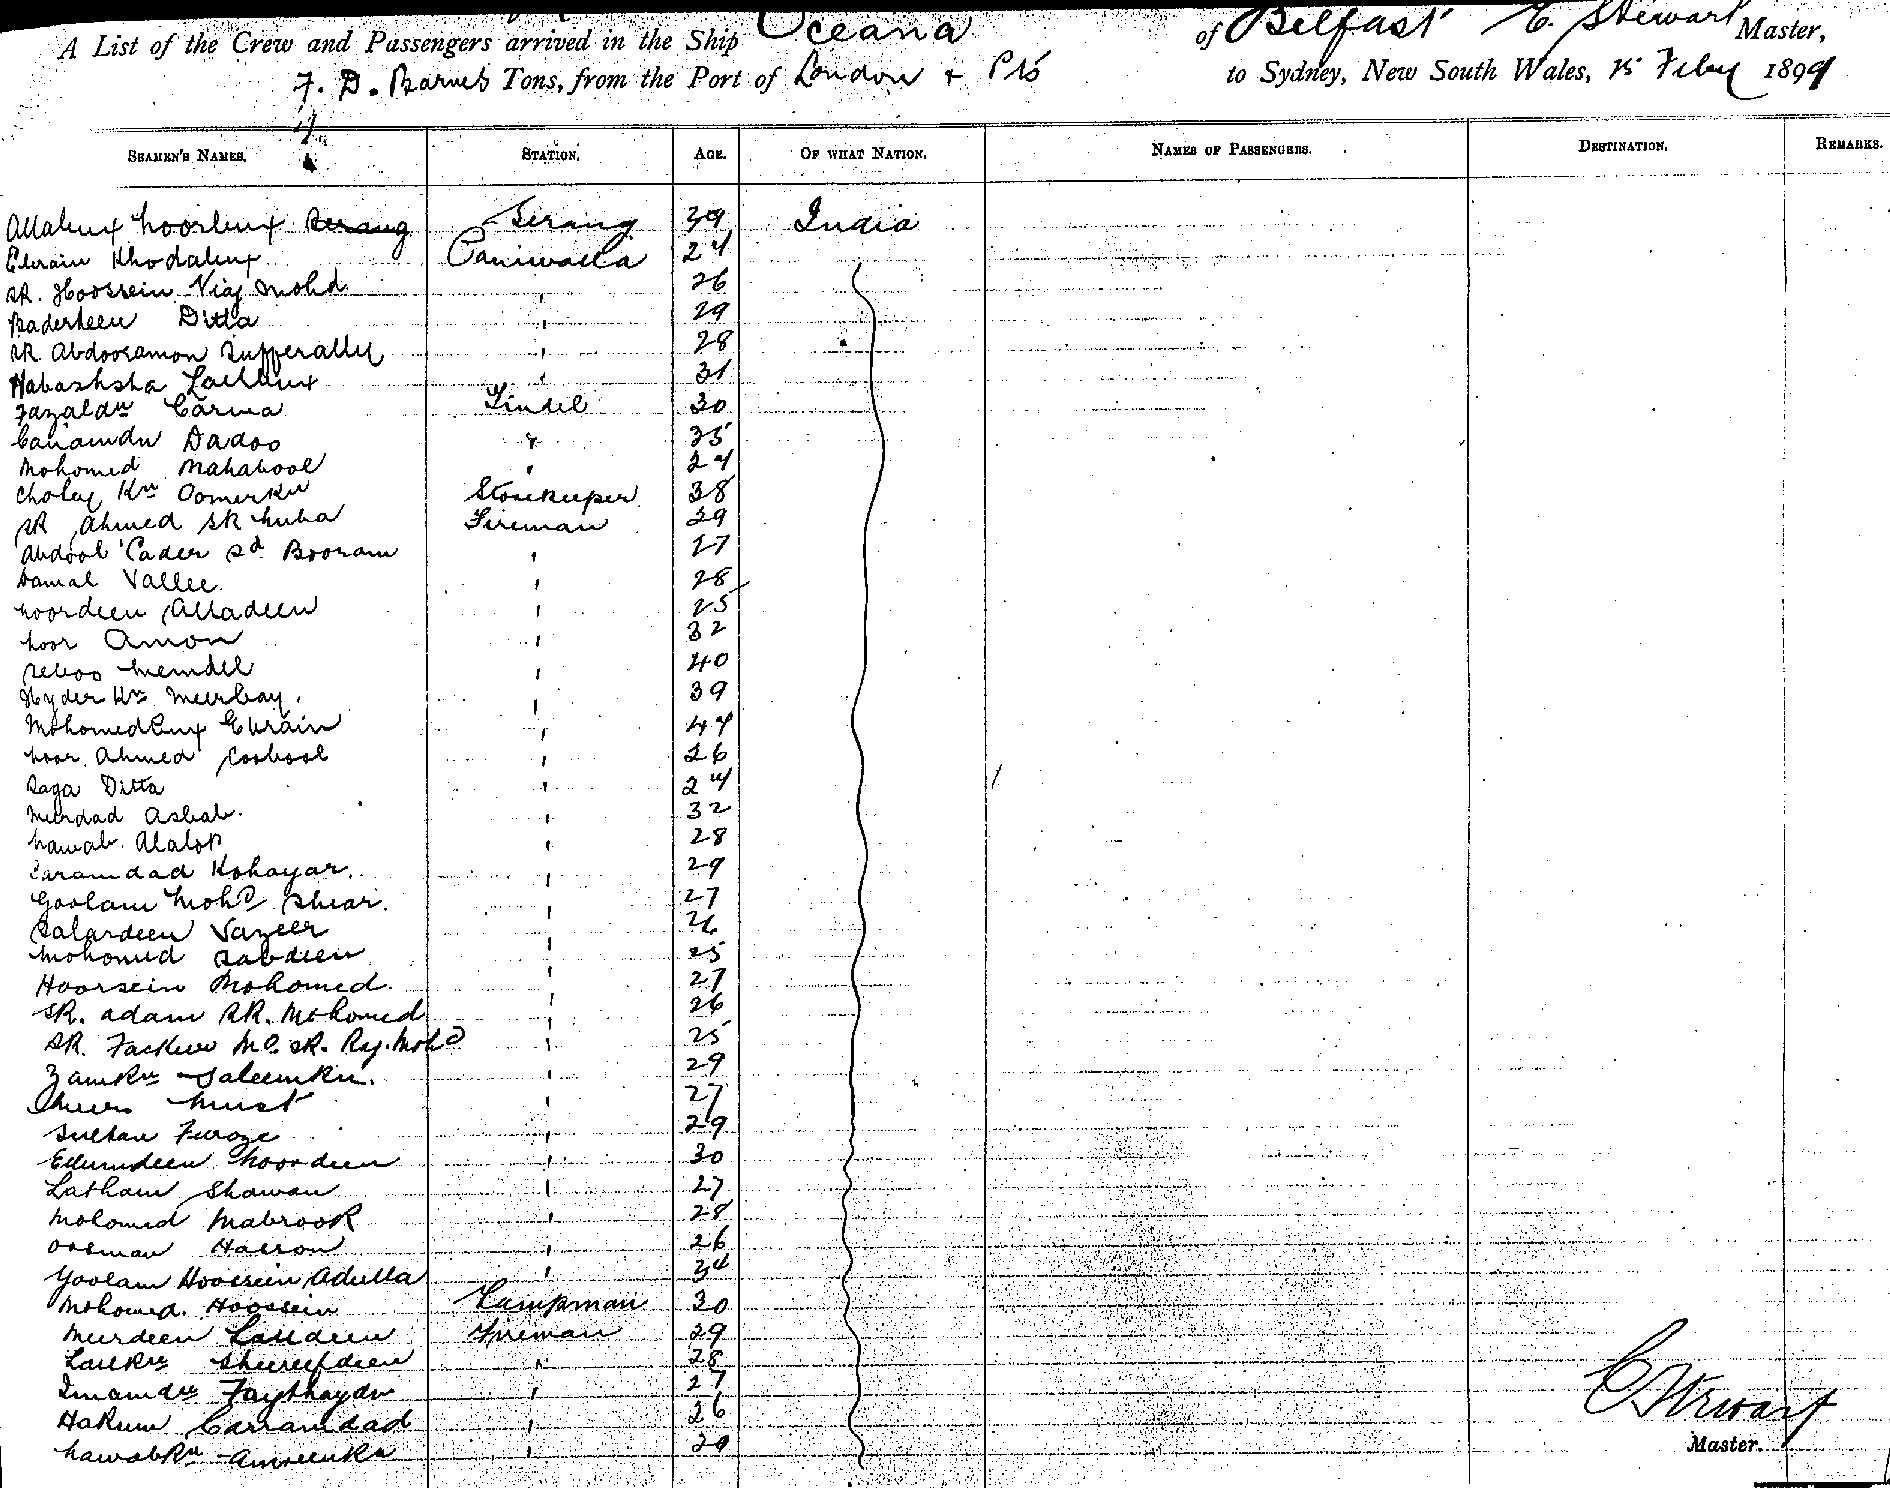 A List of the Crew and Passengers arrived in the Ship Oceana of Belfast C. Stewart Master,
F. D. Barnes Tons, from the Port of London + Pts to Sydney, New South Wales, 15 Feby 1899
SEAMEN'S NAMES. STATION. AGE. OF WHAT NATION. NAMES OF PASSENGERS. DESTINATION. REMARKS.
Allabux Noorbux Serang Serang 39 India
Ebrain Khodabux Paniwalla 24
SR. Hoossein Niaj Mohd " 26
Baderdeen Ditta " 29
SR. Abdooramon Sufferally " 28
Habashsha " 31
Fazaldn Carma Tindel 30
Dadoo " 35
Mohomed Mahabool " 24
Choley Kn Oomerkn Storekeeper 38
SR Ahmed SR Fireman 29
Abdool Cader Sd Booram " 27
Vallee " 28
Noordeen Alladeen " 25
Noor Amon " 32
" 40
Hyder Kn Meerbay. " 39
Mohomedbux Ebrain " 44
Noor Ahmed " 26
Ditta " 24
Asbab. " 32
Nawab " 28
Caramdad Kohayar. " 29
Goolam Mohd Shear. " 27
Vazeer " 26
Mohomed " 25
Hoorsein Mohomed " 27
SR. Adam SR. Mohomed " 26
SR. Md. SR. Raj. Mohd " 25
Zamkn Saleemkn. " 29
" 27
Sultan Feroze " 29
Noordeen " 30
Latham Shawan " 27
Mohomed Mabrook " 28
Oosman Haeron " 26
Goolam Hoossein Adulla " 34
Mohomed. Hoossein Lampman 30
Meerdeen Fireman 29
" 28
Imamdn " 27
Hakum Carramdad " 26
Nawabkn Ameenkn " 29
C Stewart
Master.